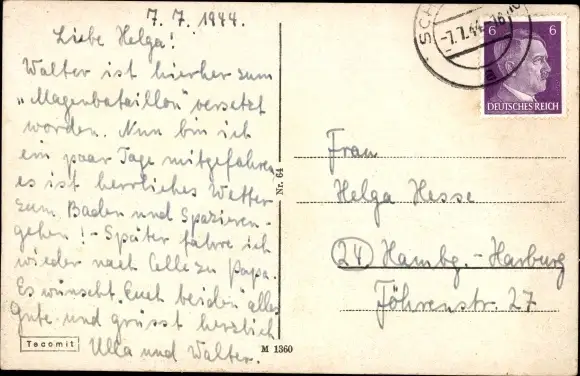 7. 7. 1944.
Liebe Helga!
Walter ist hierher zum
„Magenbataillon" versetzt
worden. Nun bin ich
ein paar Tage mitgefahren
es ist herrliches Wetter
zum Baden und Spazieren-
gehen! - Später fahre ich
wieder nach Celle zu Papa.
Es wünscht Euch beiden alles
Gute und grüsst herzlich
Ulla und Walter.
Tecomit
M 1360
Nr. 64
SCH
-7.7.44.-16
a
6 6
DEUTSCHES REICH
Frau
Helga Hesse
24 Hambg.-Harburg
Föhrenstr. 27